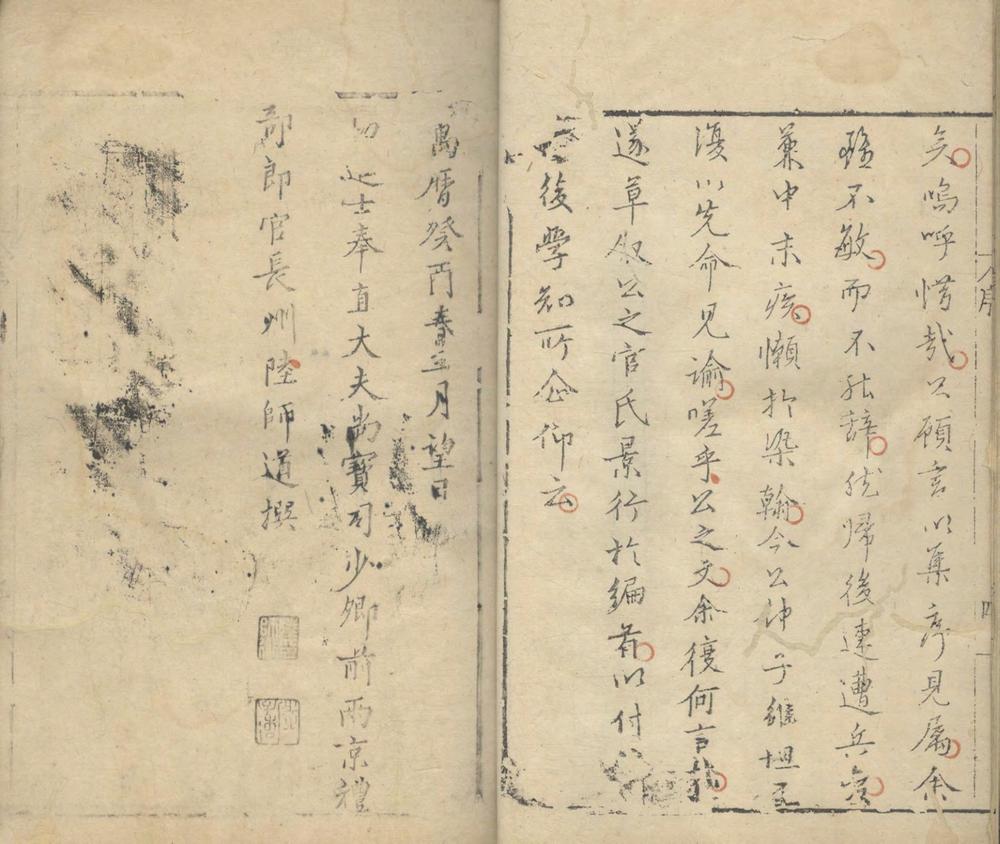 矣嗚呼惜哉公顧言以集序見屬余
雖不敏而不能辭既歸後連遭兵
兼申末疾懶於染翰今公仲子繼坦至
復以先命見諭嗟乎公之文余復何言哉
遂草叙公之官氏景行於編首以付
後學知所企仰云
萬曆癸丙春三月望日
進士奉直大夫尚寶司少卿前兩京禮
部郎官長洲陸師道撰
序
四